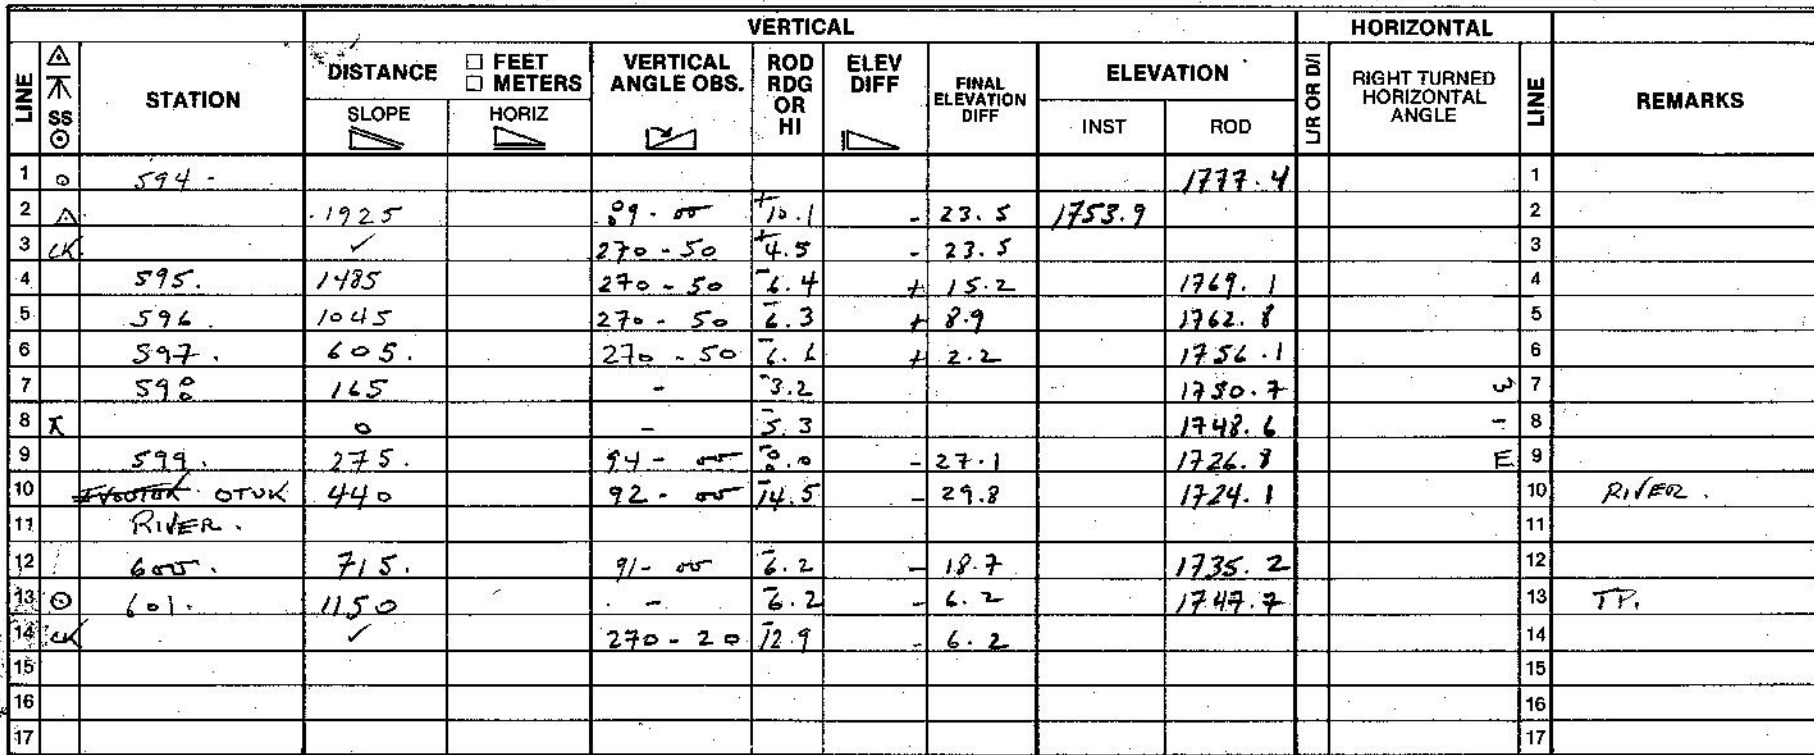 VERTICAL HORIZONTAL
LINE SS STATION DISTANCE □ FEET □ METERS SLOPE HORIZ VERTICAL ANGLE OBS. ROD RDG OR HI ELEV DIFF FINAL ELEVATION DIFF ELEVATION INST ROD L/R OR D/I RIGHT TURNED HORIZONTAL ANGLE LINE REMARKS
1 ⊙ 594 - 1777.4 1
2 △ 1925 89 - 00 +10.1 - 23.5 1753.9 2
3 CK ✓ 270 - 50 +4.5 - 23.5 3
4 595. 1485 270 - 50 -6.4 + 15.2 1769.1 4
5 596. 1045 270 - 50 -6.3 + 8.9 1762.8 5
6 597. 605. 270 - 50 -6.6 + 2.2 1756.1 6
7 598 165 - -3.2 1750.7 3 7
8 ⊼ 0 - -5.3 1748.6 - 8
9 599. 275. 94 - 00 -8.0 - 27.1 1726.8 E 9
10 OTUK 440 92 - 00 -14.5 - 29.8 1724.1 10 RIVER.
11 RIVER. 11
12 600. 715. 91 - 00 -6.2 - 18.7 1735.2 12
13 ⊙ 601. 1150 - -6.2 - 6.2 1747.7 13 TP.
14 CK ✓ 270 - 20 -12.9 - 6.2 14
15 15
16 16
17 17